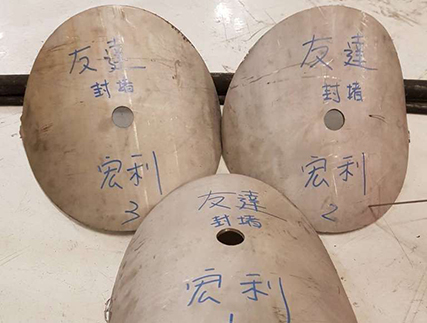 友達
封墙
宏利
3
友達
封墙
宏利
2
友達
封墙
宏利
1